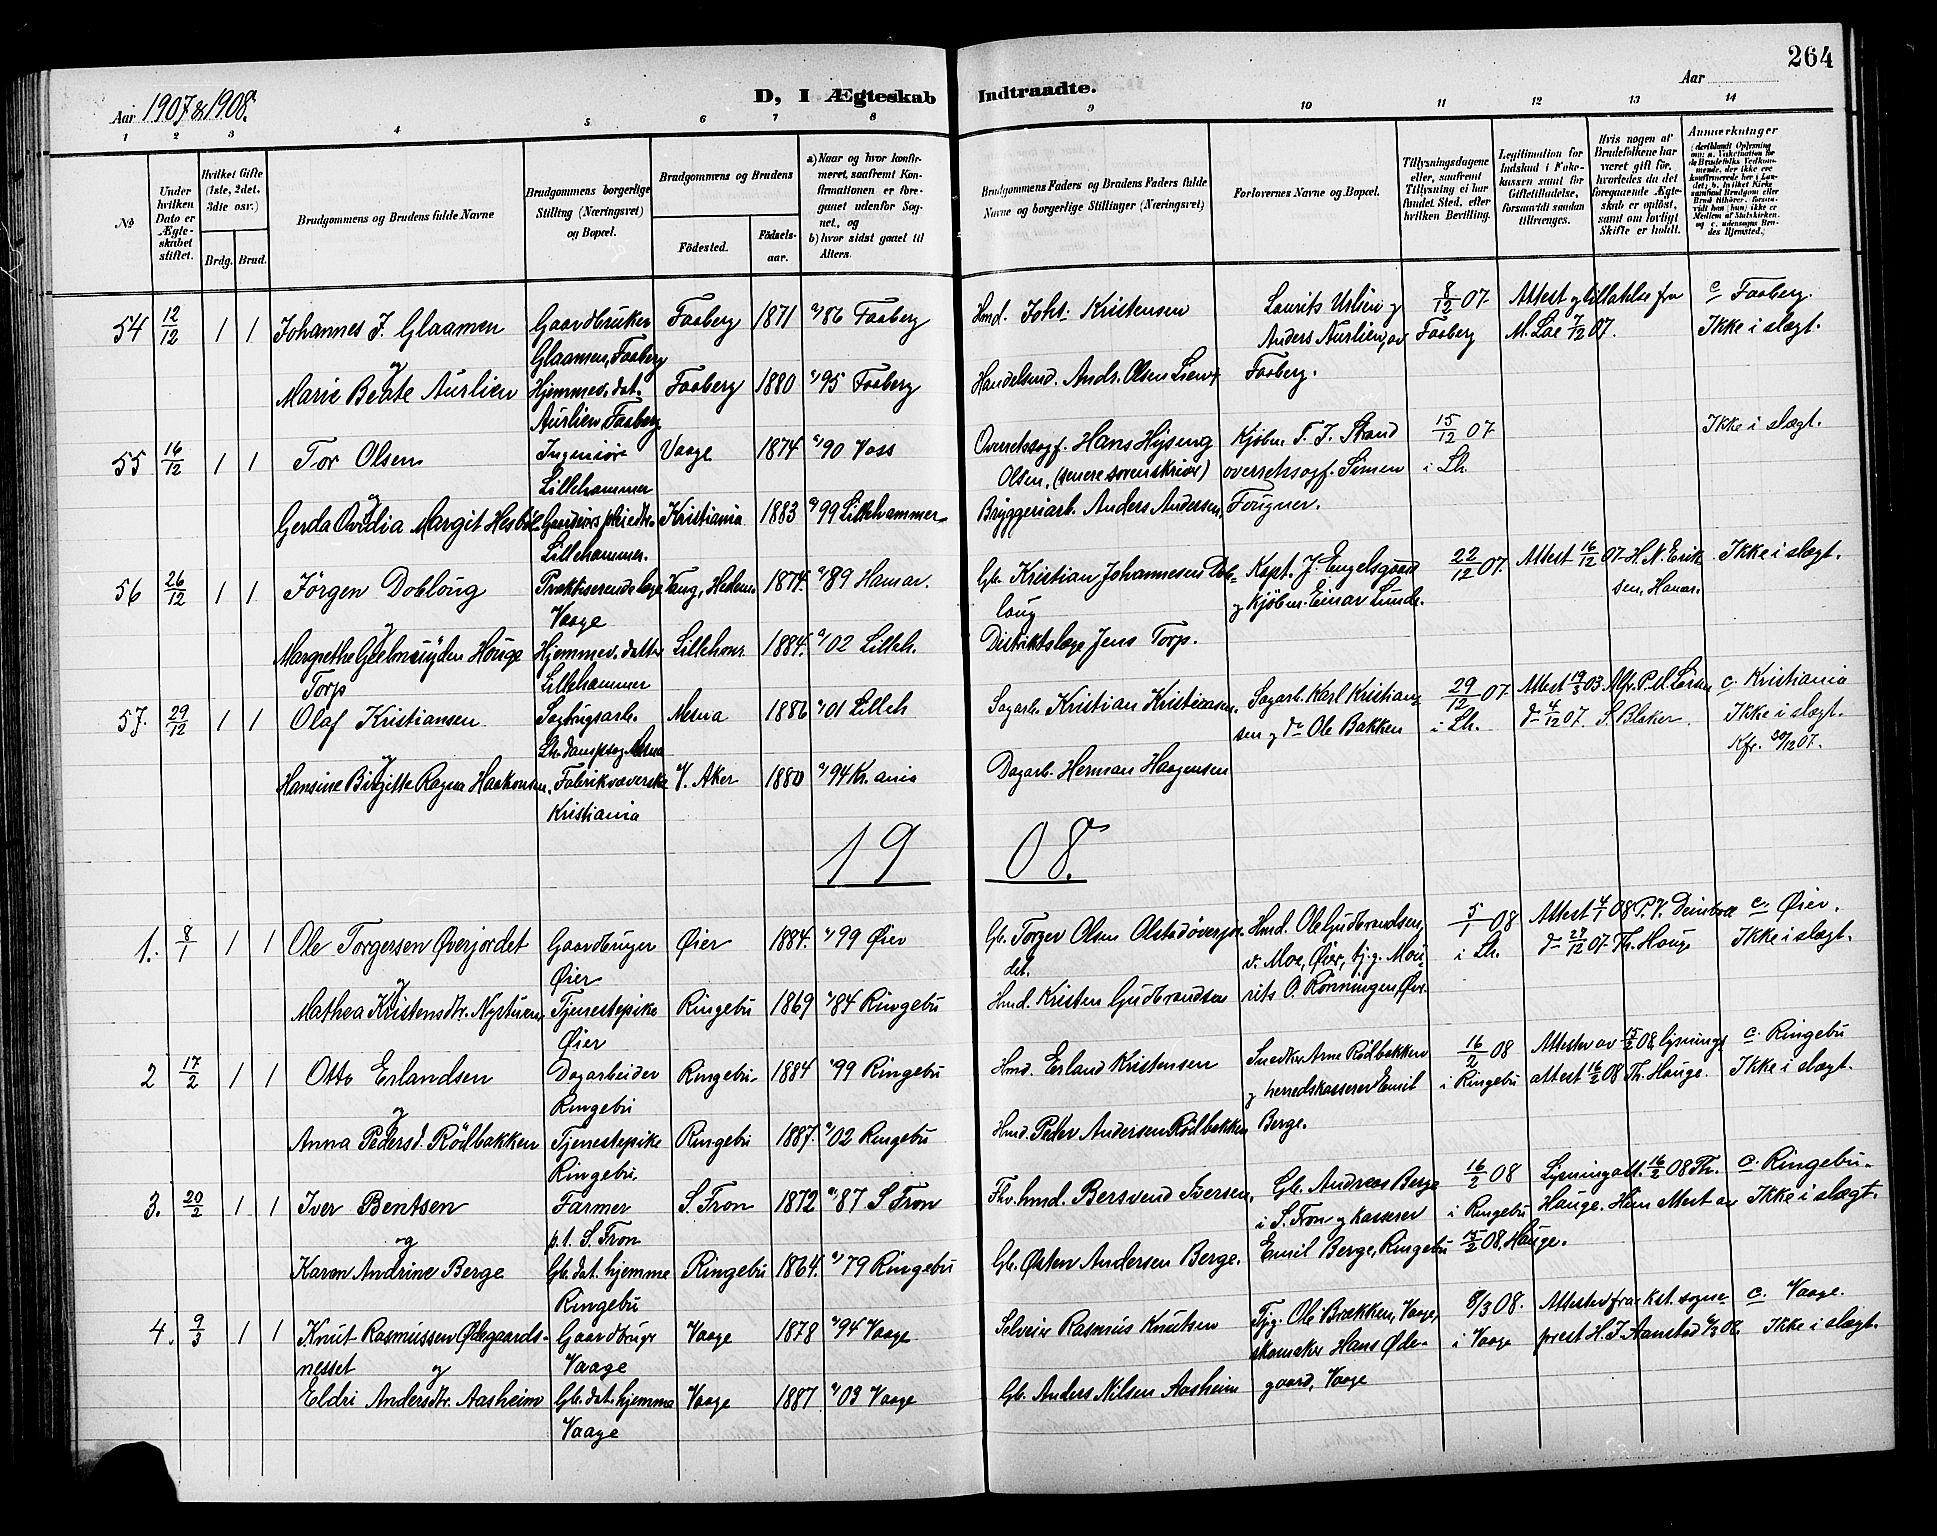 264
Aar 1907 & 1908.
D, I Ægteskab Indtraadte.
Aar
1 2 3 4 5 6 7 8 9 10 11 12 13 14
No
Under hvilken Dato er Ægteskabet stiftet.
Hvilket Gifte (1ste, 2det, 3dte osv.)
Brdg. Brud.
Brudgommens og Brudens fulde Navne
Brudgommens borgerlige Stilling (Næringsvei) og Bopæl.
Brudgommens og Brudens
Födested. Födselsaar.
a) Naar og hvor konfirmeret, saafremt Konfirmationen er foregaaet udenfor Sognet, og
b) hvor sidst gaaet til Alters.
Brudgommens Faders og Brudens Faders fulde Navne og borgerlige Stillinger (Næringsvei)
Forlovernes Navne og Bopæl.
Tillysningsdagene eller, saafremt Tillysning ei har fundet Sted, efter hvilken Bevilling.
Legitimation for Indskud i Enkekassen samt for Giftetilladelse, forsaavidt saadan tiltrænges.
Hvis nogen af Brudefolkene har været gift før, hvorledes da det foregaaende Ægteskab er opløst, samt om lovligt Skifte er holdt.
Anmærkninger
54 12/12 1 1 Johannes J. Glaamen Gaardbruker Faaberg 1871 86 Faaberg Hmd. Joht. Kristensen Laurits Urlien og 8/12 07. Attest og tillatelse fra c Faaberg.
Glaamen, Faaberg Anders Aurlien, av Faaberg M. Loe 7/12 07. Ikke i slægt.
og
Marie Beate Aurlien Hjemmev. dat. Faaberg 1880 95 Faaberg Handelsmd. Andr. Olsen Faaberg.
Aurlien Faaberg
55 16/12 1 1 Tor Olsen Ingeniør Vaage 1874 90 Voss Overretssagf. Hans Hysing Kjøbm. T. J. Strand 15/12 07 Ikke i slægt.
Lillehammer Olsen, (senere sorenskriver) overretssagf. Simen i Lh.
og
Gerda Ovidia Margit Kristiania 1883 99 Lillehammer Bryggeriarb. Anders Andersen, Fougner.
Lillehammer.
56 26/12 1 1 Jörgen Dobloug Praktiserende læge Vang, Hedem. 1874. 89 Hamar. Gb. Kristian Johannesen Dob- Kapt. J. Engelsgaard 22/12 07. Attest 16/12 07 H. N. Erik- Ikke i slægt.
Vaage loug og Kjøbm. Einar Lunde. sen, Hamar.
og
Margrethe Geelmuÿden Houge Hjemmev. datter Lilleham. 1884. 02 Lilleh. Distriktslæge Jens Torp.
Torp Lillehammer
57. 29/12 1 1 Olaf Kristiansen Sagbrugsarb. Mesna 1886 01 Lilleh Sagarb. Kristian Kristiansen. Sagarb. Karl Kristian- 29/12 07 c. Kristiania
Lh. dampsag Mesna sen og do Ole Bakken i Lh. do 4/12 07. S. Blaker. Ikke i slægt.
og Kfr. 30/12 07.
Hansine Birgitte Ragna Haakonsen, Fabrikvæverske V. Aker 1880 94 Kr.ania Dagarb. Herman Haagensen
Kristiania
1908.
1. 8/1 1 1 Ole Torgersen Øverjordet Gaardbruger Øier 1884. 99 Øier Gb. Torger Olsen Olstadøverjor- Hmd. Ole Gudbrandsen, 5/1 08 Attest 4/1 08 P. V. Deinboll c. Øier.
Øier det. v. Moe, Øier, tj.g. Mau- i Lh. do 27/12 07. Th. Hauge Ikke i slægt.
og
Mathea Kristensdtr. Nystuen, Tjenestepike Ringebu 1869 84 Ringebu Hmd. Kristen Gudbrandsen rits O. Rønningen Øier.
Øier
2 17/2 1 1 Otto Erlandsen Dagarbeider Ringebu 1884 99 Ringebu Hmd. Erland Kristensen Snedker Arne Rödbakken 16/2 08 Attester av 15/2 08, lysnings- c. Ringebu
Ringebu og herredskasserer Emil i Ringebu attest 16/2 08 Th. Hauge. Ikke i slægt.
og
Anna Pedersd. Rödbakken Tjenestepike Ringebu 1887. 02 Ringebu Hmd. Peder Andersen Rödbakken Berge.
Ringebu.
3. 20/2 1 1 Iver Bentsen Farmer S. Fron 1872 87 S Fron Fhv. hmd. Bersvend Iversen, Gb. Andreas Berge 16/2 08 Lysningsatt. 16/2 08 Th. c. Ringebu.
og p.t. S. Fron i S. Fron og kasserer i Ringebu Hauge. Ikke i slægt.
Karen Andrine Berge Gb. dat. hjemme Ringebu 1864. 79 Ringebu Gb. Østen Andersen Berge. Emil Berge, Ringebu 15/2 08, Hauge.
Ringebu
4. 9/3 1 1 Knut Rasmussen Ødegaards- Gaardbruger Vaage 1878 94 Vaage Selveier Rasmus Knutsen Tj.g. Ole Brækken, Vaage, 8/3 08. Attester fra kst. sogne- c. Vaage.
nesset og Vaage skomaker Hans Øde- i Vaage prest H. J. Aanstad 9/3 08. Ikke i slægt.
Eldri Andersdtr. Aasheim Gb. dat. hjemme Vaage 1887 03 Vaage Gb. Anders Nilsen Aasheim gaard, Vaage
Vaage